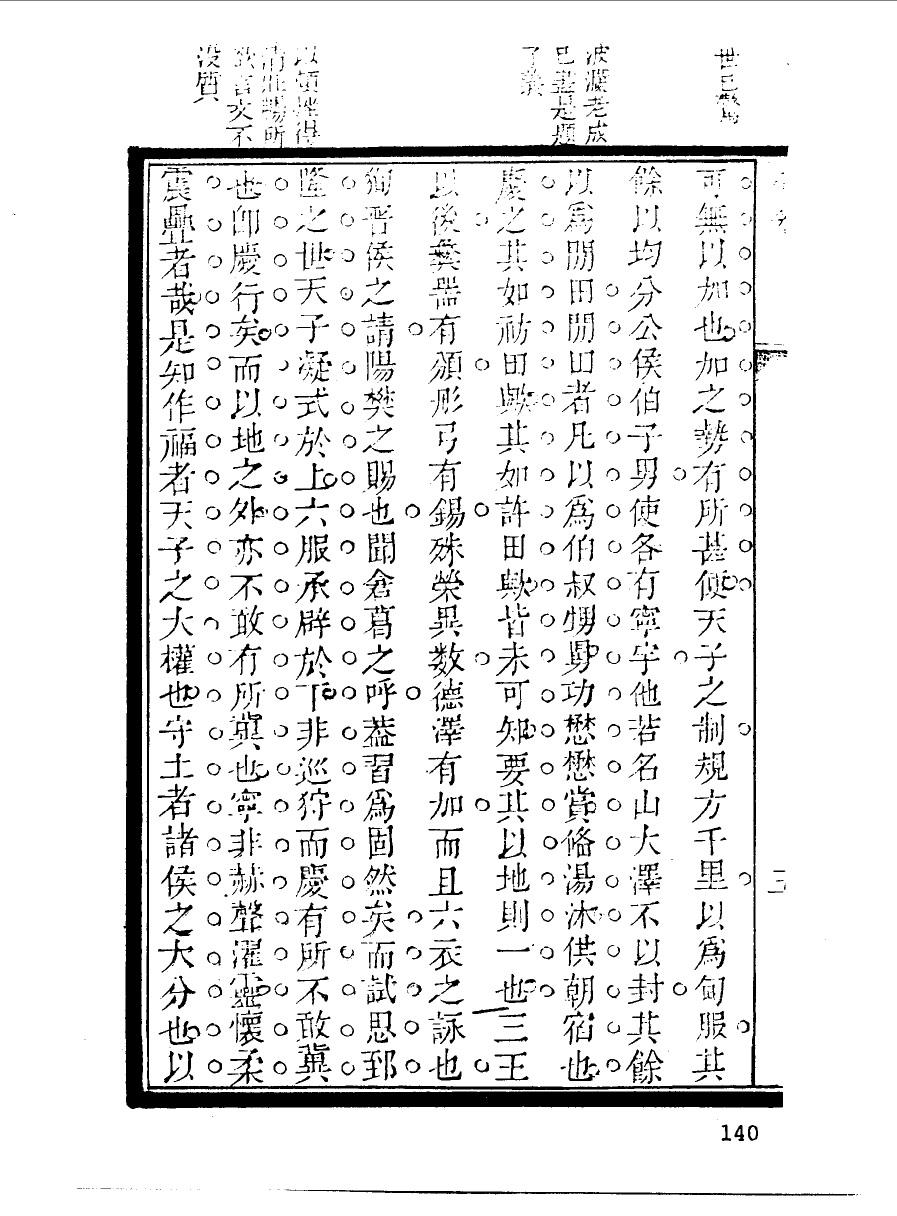 世已驚
波瀾老成
已盡是題
了義
以頓挫得
清壯暢所
欲言文不
沒質
可無以加也加之勢有所甚便天子之制規方千里以爲甸服其
餘以均分公侯伯子男使各有寧宇他若名山大澤不以封其餘
以爲閒田閒田者凡以爲伯叔甥舅功懋懋賞俻湯沐供朝宿也
慶之其如祊田歟其如許田歟皆未可知要其以地則一也三王
以後彝器有頒彤弓有錫殊榮異数德澤有加而且六衣之詠也
狥晋侯之請陽樊之賜也聞倉葛之呼葢習爲固然矣而試思郅
隆之世天子凝式於上六服承辟於下非巡狩而慶有所不敢冀
也卽慶行矣而以地之外亦不敢有所冀也寧非赫聲濯靈懷柔
震疊者哉是知作福者天子之大權也守土者諸侯之大分也以
三
140